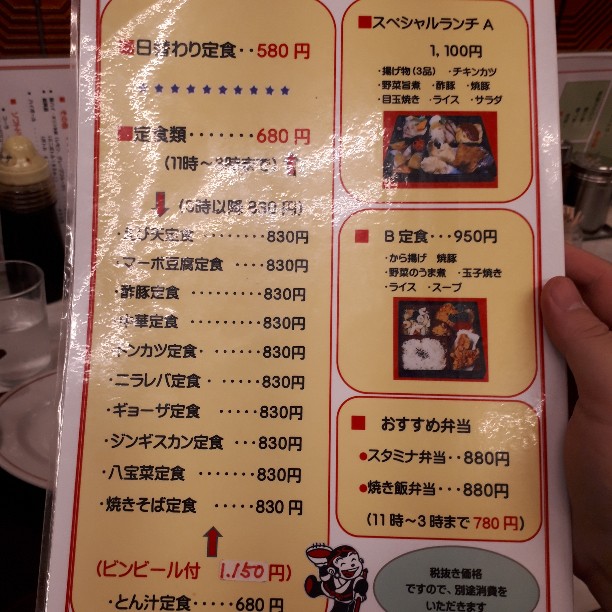 日替わり定食‥580円
★★★★★★★★★★
■定食類·······680円
(11時〜3時まで)
(3時以降 830円)
定食 ········830円
・マーボ豆腐定食 ····830円
・酢豚定食 ·········830円
・中華定食 ·········830円
・トンカツ定食· ·····830円
・ニラレバ定食· ·····830円
・ギョーザ定食 ·····830円
・ジンギスカン定食 ···830円
・八宝菜定食 ·······830円
・焼きそば定食 ·····830円
(ビンビール付 1.150円)
・とん汁定食·····680円
■スペシャルランチ A
1,100円
・揚げ物(3品) ・チキンカツ
・野菜旨煮 ・酢豚 ・焼豚
・目玉焼き ・ライス ・サラダ
■ B 定食···950円
・から揚げ 焼豚
・野菜のうま煮 ・玉子焼き
・ライス ・スープ
■ おすすめ弁当
●スタミナ弁当‥880円
●焼き飯弁当···880円
(11時〜3時まで 780円)
税抜き価格
ですので、別途消費を
いただきます